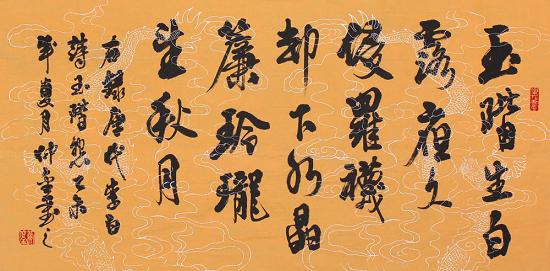 玉階生白
露夜久
侵羅襪
却下水晶
簾玲瓏
望秋月
右錄唐代李白
詩玉階怨乙未
年夏月仲書之